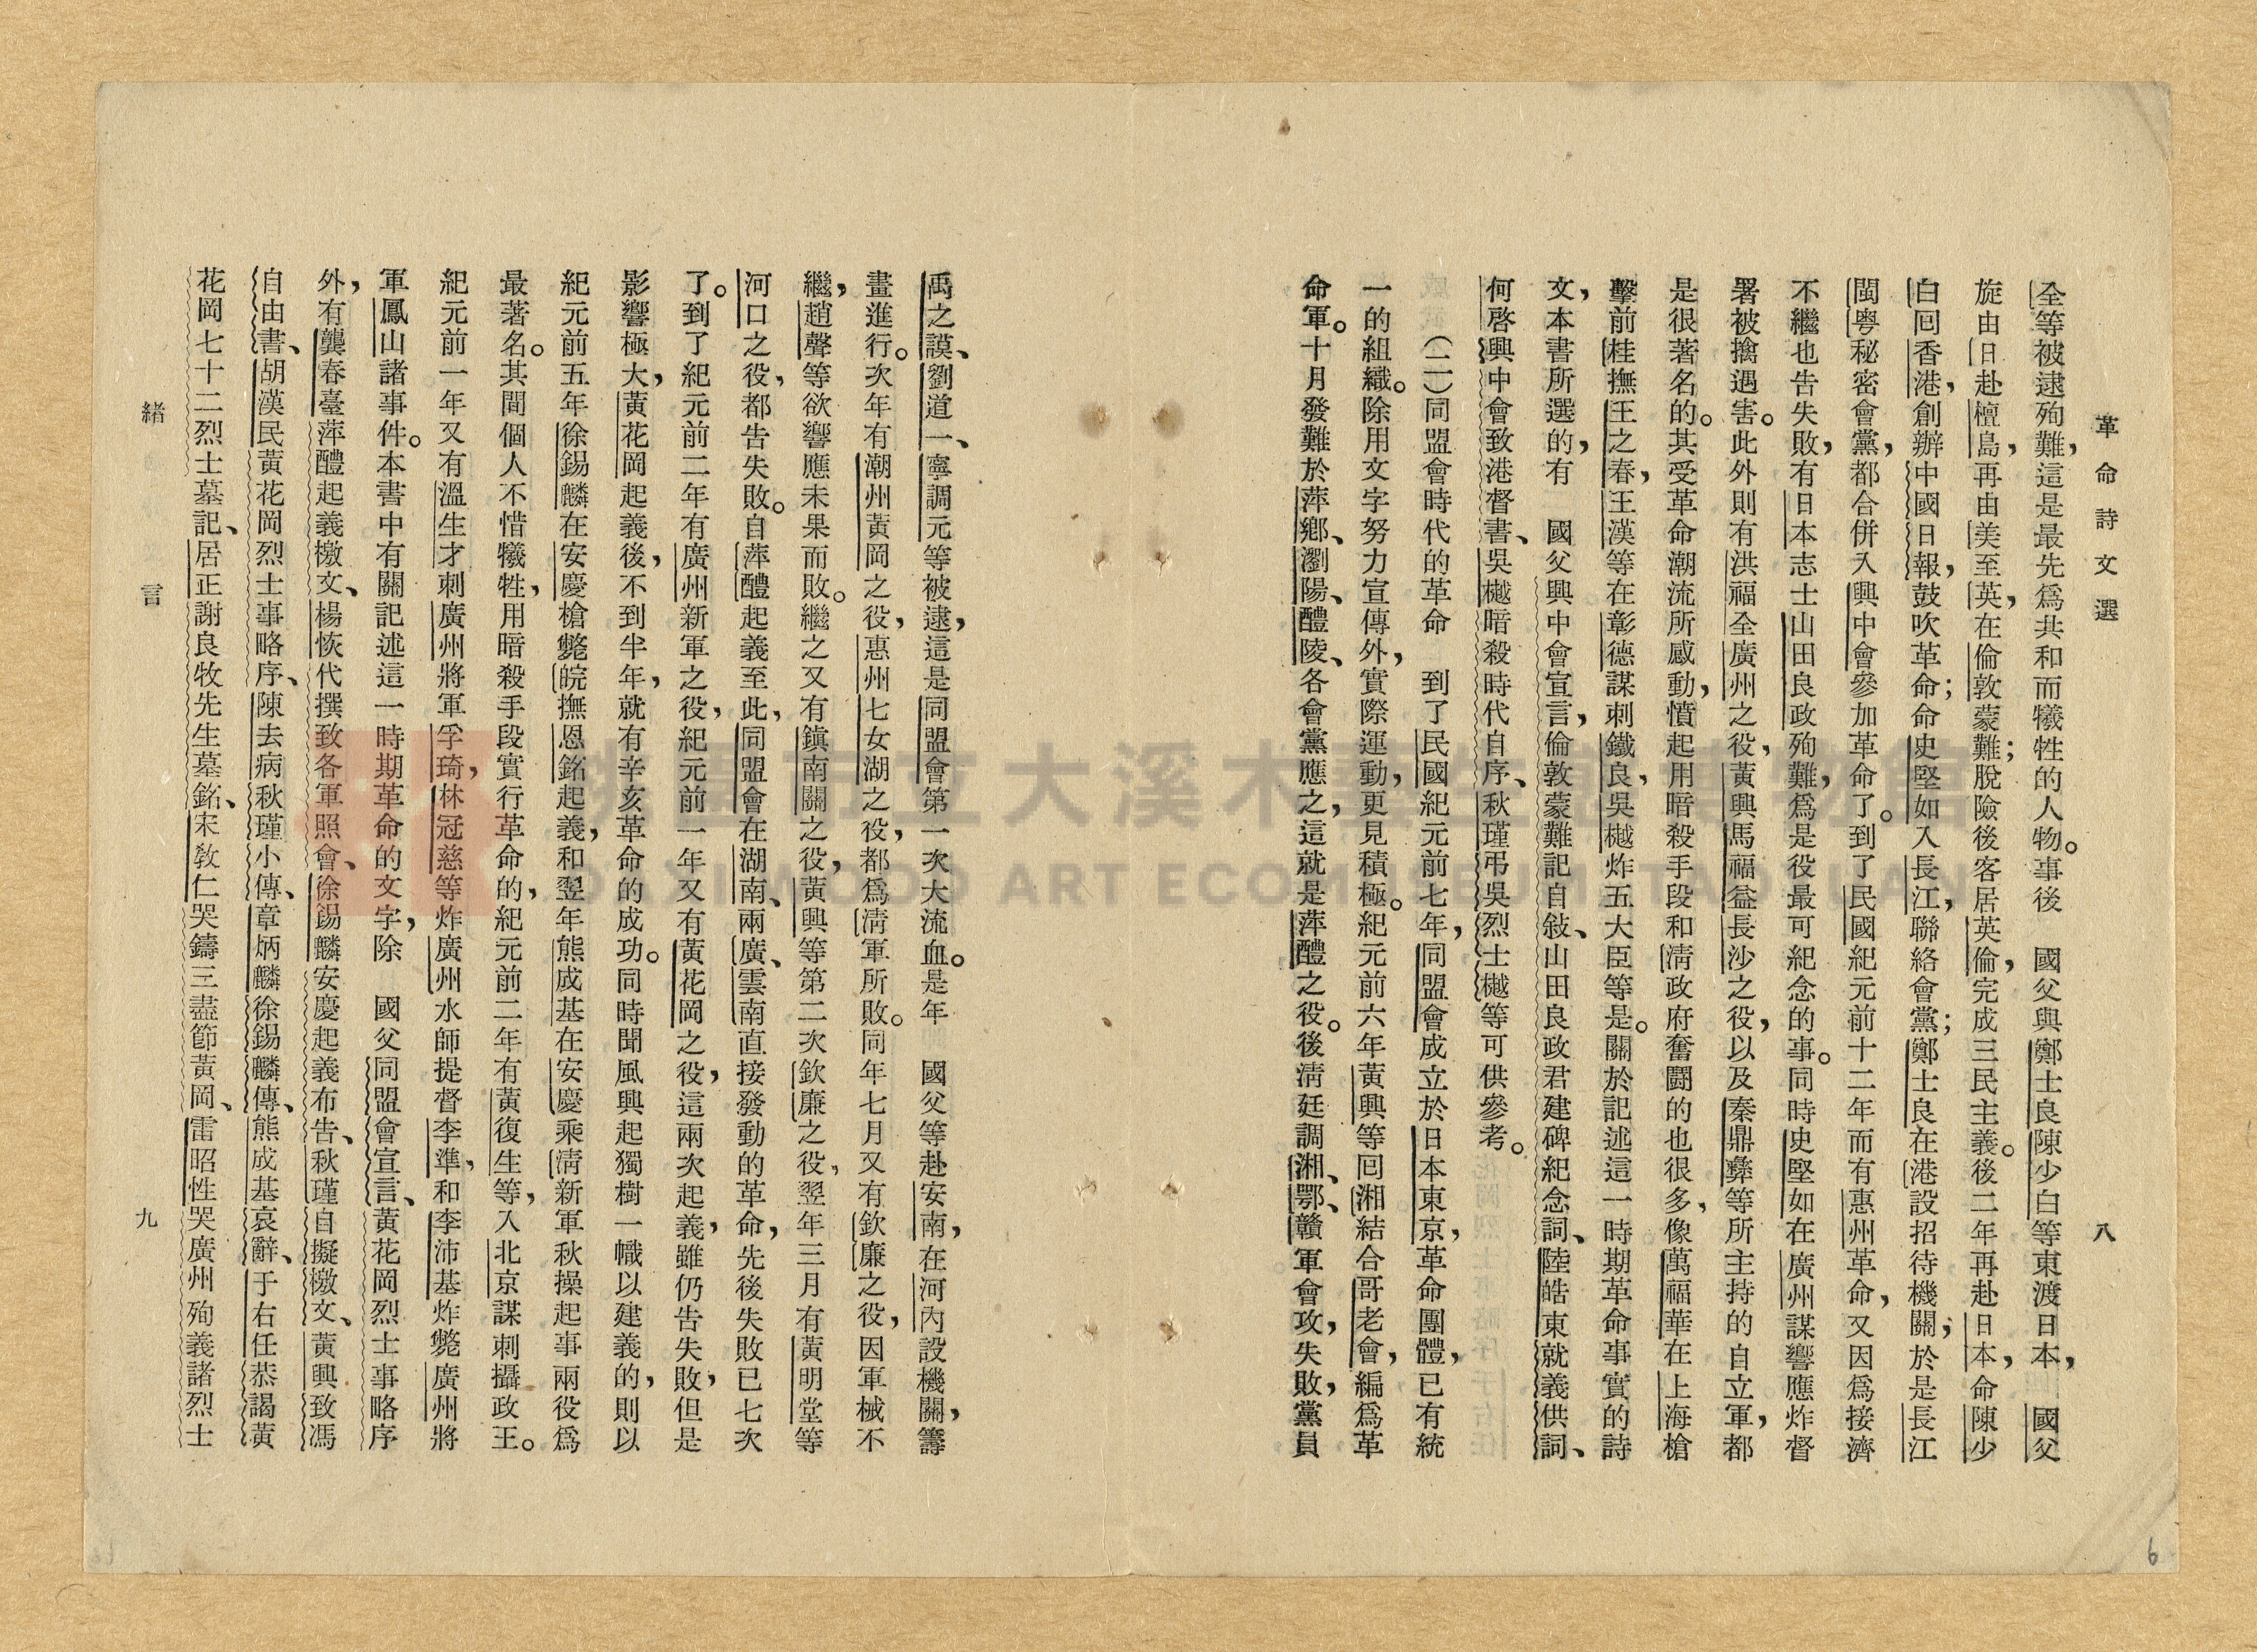 革命詩文選
八
全等被逮殉難，這是最先爲共和而犧牲的人物。事後　國父與鄭士良陳少白等東渡日本，　國父
旋由日赴檀島，再由美至英，在倫敦蒙難；脫險後客居英倫，完成三民主義。後二年再赴日本，命陳少
白回香港，創辦中國日報，鼓吹革命；命史堅如入長江，聯絡會黨；鄭士良在港設招待機關；於是長江
閩粵秘密會黨，都合併入興中會參加革命了。到了民國紀元前十二年而有惠州革命，又因爲接濟
不繼也告失敗，有日本志士山田良政殉難，爲是役最可紀念的事。同時史堅如在廣州謀響應炸督
署被擒遇害。此外則有洪福全廣州之役，黃興馬福益長沙之役，以及秦鼎彝等所主持的自立軍，都
是很著名的。其受革命潮流所感動，憤起用暗殺手段和淸政府奮鬪的也很多，像萬福華在上海槍
擊前桂撫王之春，王漢等在彰德謀刺鐵良，吳樾炸五大臣等是。關於記述這一時期革命事實的詩
文，本書所選的，有　國父興中會宣言，倫敦蒙難記自敍、山田良政君建碑紀念詞、陸皓東就義供詞、
何啓興中會致港督書、吳樾暗殺時代自序、秋瑾弔吳烈士樾等可供參考。
（二）同盟會時代的革命　到了民國紀元前七年，同盟會成立於日本東京，革命團體，已有統
一的組織。除用文字努力宣傳外，實際運動，更見積極。紀元前六年黃興等回湘結合哥老會，編爲革
命軍。十月發難於萍鄉、瀏陽、醴陵、各會黨應之，這就是萍醴之役。後淸廷調湘、鄂、贛軍會攻，失敗，黨員
禹之謨、劉道一、寧調元等被逮，這是同盟會第一次大流血。是年　國父等赴安南，在河內設機關，籌
畫進行。次年有潮州黃岡之役，惠州七女湖之役，都爲淸軍所敗。同年七月又有欽廉之役，因軍械不
繼，趙聲等欲響應未果而敗。繼之又有鎭南關之役，黃興等第二次欽廉之役，翌年三月有黃明堂等
河口之役，都告失敗。自萍醴起義至此，同盟會在湖南、兩廣、雲南直接發動的革命，先後失敗已七次
了。到了紀元前二年有廣州新軍之役，紀元前一年又有黃花岡之役，這兩次起義，雖仍告失敗，但是
影響極大，黃花岡起義後，不到半年，就有辛亥革命的成功。同時聞風興起獨樹一幟以建義的，則以
紀元前五年徐錫麟在安慶槍斃皖撫恩銘起義，和翌年熊成基在安慶乘淸新軍秋操起事兩役爲
最著名。其間個人不惜犧牲，用暗殺手段實行革命的，紀元前二年有黃復生等，入北京謀刺攝政王。
紀元前一年又有溫生才刺廣州將軍孚琦，林冠慈等炸廣州水師提督李準，和李沛基炸斃廣州將
軍鳳山諸事件。本書中有關記述這一時期革命的文字，除　國父同盟會宣言、黃花岡烈士事略序
外，有龔春臺萍醴起義檄文、楊恢代撰致各軍照會、徐錫麟安慶起義布告、秋瑾自擬檄文、黃興致馮
自由書、胡漢民黃花岡烈士事略序、陳去病秋瑾小傳、章炳麟徐錫麟傳、熊成基哀辭、于右任恭謁黃
花岡七十二烈士墓記、居正謝良牧先生墓銘、宋敎仁哭鑄三盡節黃岡、雷昭性哭廣州殉義諸烈士
緒言
九
6
大溪木藝生態博物館
DAXI WOOD ART ECOMUSEUM, TAOYUAN